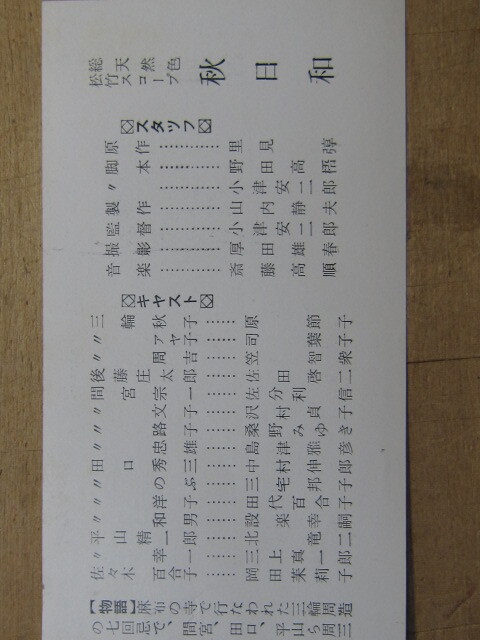 総天然色
松竹スコープ
秋日和
◇スタッフ◇
原作…………里見弴
脚本…………野田高梧
〃…………小津安二郎
製作…………山内静夫
監督…………小津安二郎
撮影…………厚田雄春
音楽…………斎藤高順
◇キャスト◇
三輪秋子……原節子
〃アヤ子……司葉子
〃周吉……笠智衆
後藤庄太郎……佐田啓二
間宮宗一……佐分利信
〃文子……沢村貞子
〃路子……桑野みゆき
〃忠雄……島津雅彦
田口秀三……中村伸郎
〃のぶ子……三宅邦子
〃洋子……田代百合子
〃和男……設楽幸嗣
平山精一郎……北竜二
〃幸一……三上真一郎
佐々木百合子……岡田茉莉子
【物語】麻布の寺で行なわれた三輪周造
の七回忌で、間宮、田口、平山ら周三